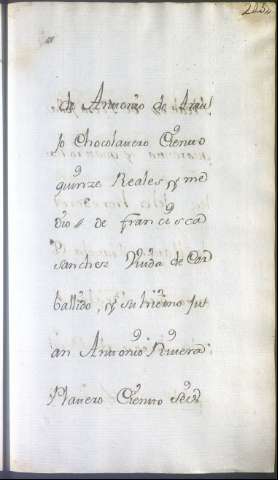 de Antonio de Arau
jo Chocolatero Ciento
quinze Reales y me
dio // de francisca
sanchez Viuda de Car
ballido, y su hierno Ju
an Antonio Rivera
Platero Ciento